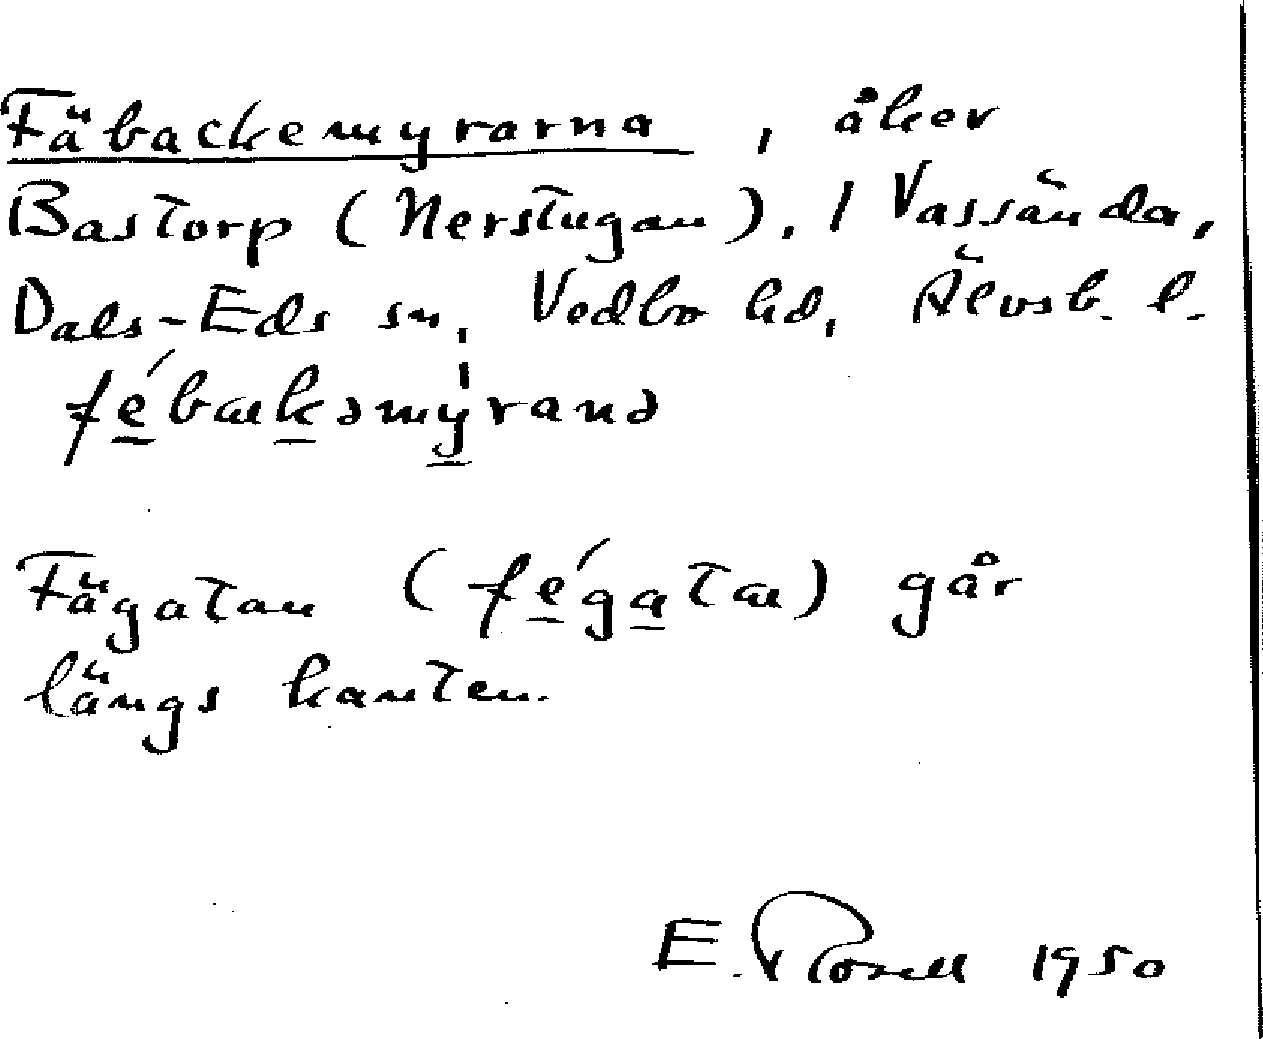 Fäbackemyrarna, åker
Bastorp (Nerstugan), 1 Vassända,
Dals-Eds sn, Vedbo hd, Älvsb. l.
fé̱bæḵəmy̱ranə
Fägatan (fé̱ga̱tæ) går
längs kanten.
E. Rosell 1950